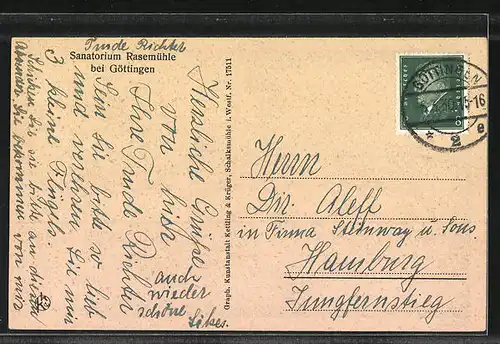 Trude Richter
Sanatorium Rasemühle
bei Göttingen
Herzliche Grüße
von hier
Ihre Trude Richter
Sein Sie bitte so lieb
und verehren Sie mir
3 kleine Flügels.
Schicken Sie sie bitte an die
Adresse. Sie bekommen von mir
auch
wieder
schöne
Likes.
Graph. Kunstanstalt Kettling & Krüger, Schalksmühle i. Westf. Nr. 17511
GÖTTINGEN
2 e
Herrn
Dir. Aleff
in Firma Steinway u. Sons
Hamburg
Jungfernstieg